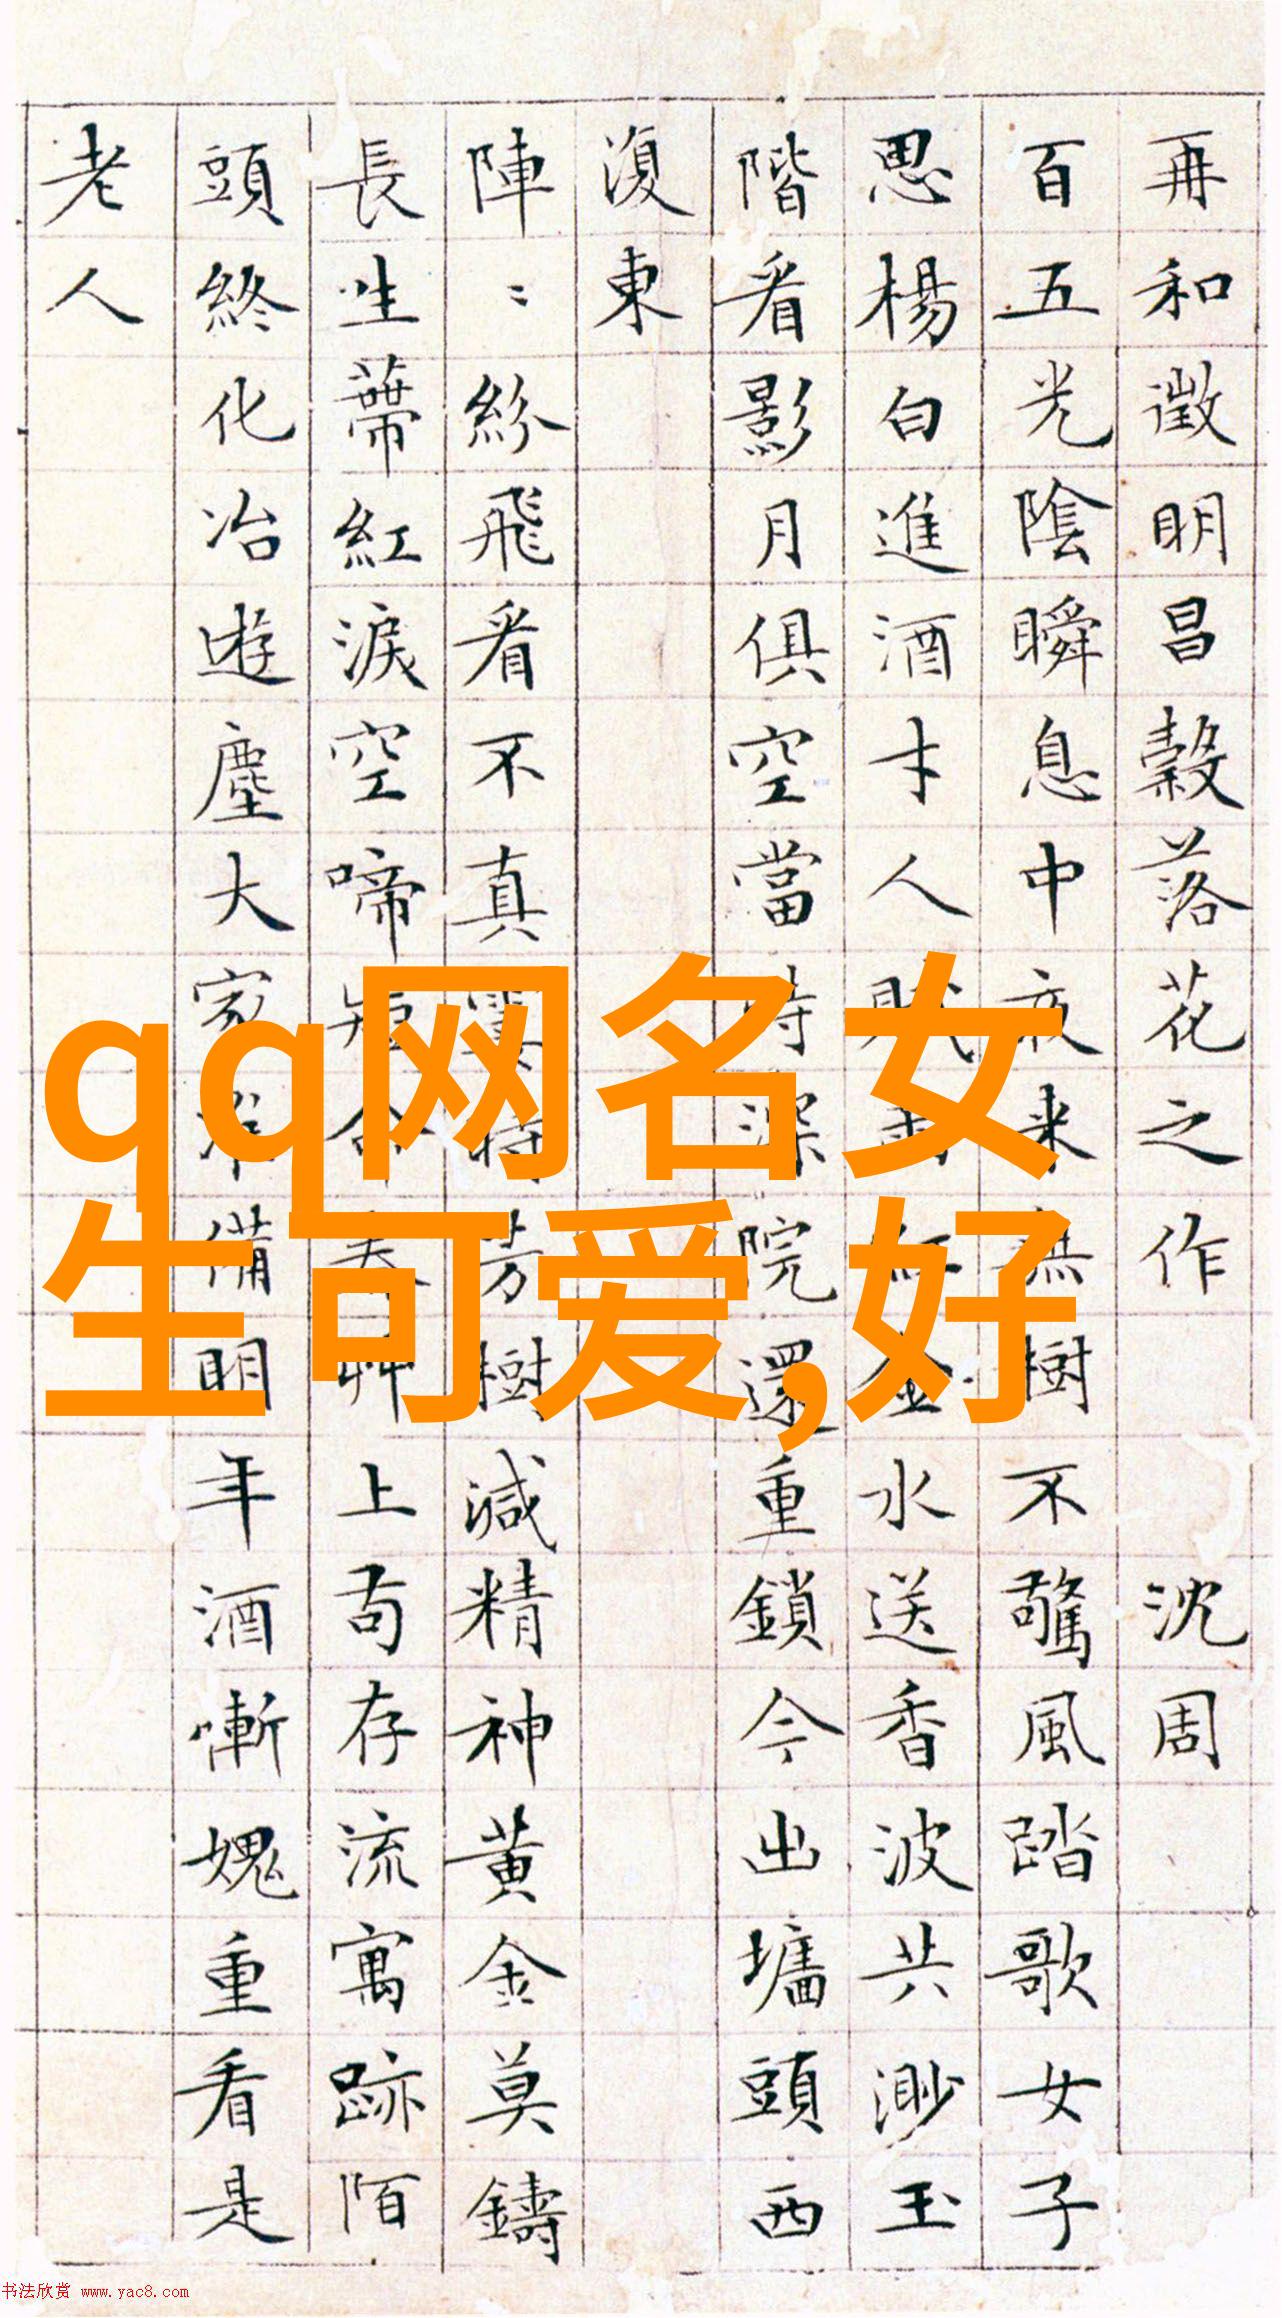 再和徵明昌穀落花之作 沈周
百五光陰瞬息中夜来無樹不驚風踏歌女子
思楊白進酒才人賦雨紅金水送香波共渺玉
階看影月俱空當時深院還重鎖今出墻頭西
復東
陣〻紛飛看不真霎時芳樹減精神黃金莫鑄
長生蒂紅淚空啼短命春艸上苟存流寓跡陌
頭終化冶遊塵大家準備明年酒慚愧重看是
老人
qq网名女
生可爱,好
书法欣赏 www.yac8.com